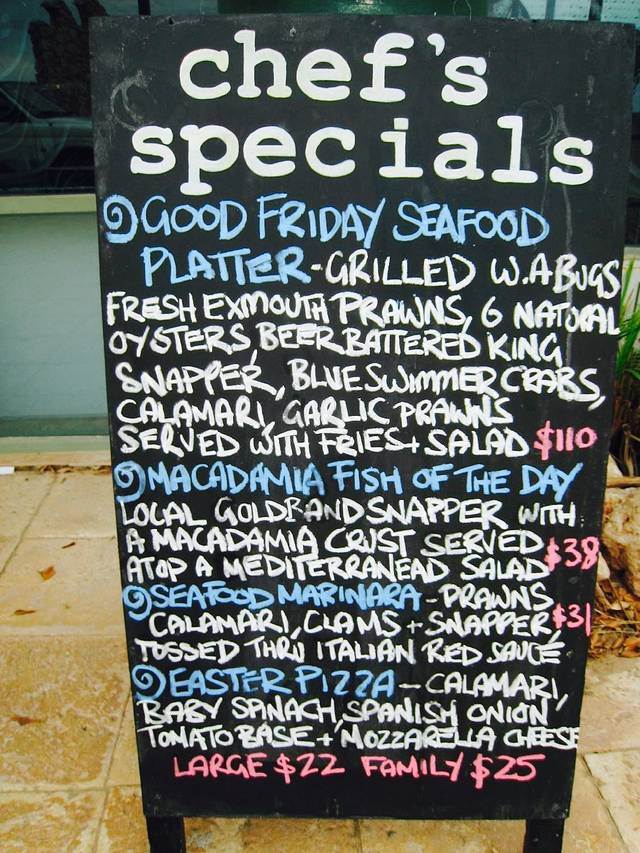 chef's
specials
GOOD FRIDAY SEAFOOD
PLATTER-GRILLED W.A BUGS
FRESH EXMOUTH PRAWNS, 6 NATURAL
OYSTERS, BEER BATTERED KING
SNAPPER, BLUE SWIMMER CRABS,
CALAMARI, GARLIC PRAWNS
SERVED WITH FRIES + SALAD $110
MACADAMIA FISH OF THE DAY
LOCAL GOLDBAND SNAPPER WITH
A MACADAMIA CRUST SERVED
ATOP A MEDITERRANEAD SALAD $38
SEAFOOD MARINARA - PRAWNS,
CALAMARI, CLAMS + SNAPPER, $31
TOSSED THRU ITALIAN RED SAUCE
EASTER PIZZA - CALAMARI,
BABY SPINACH, SPANISH ONION
TOMATO BASE + MOZZARELLA CHEESE
LARGE $22 FAMILY $25